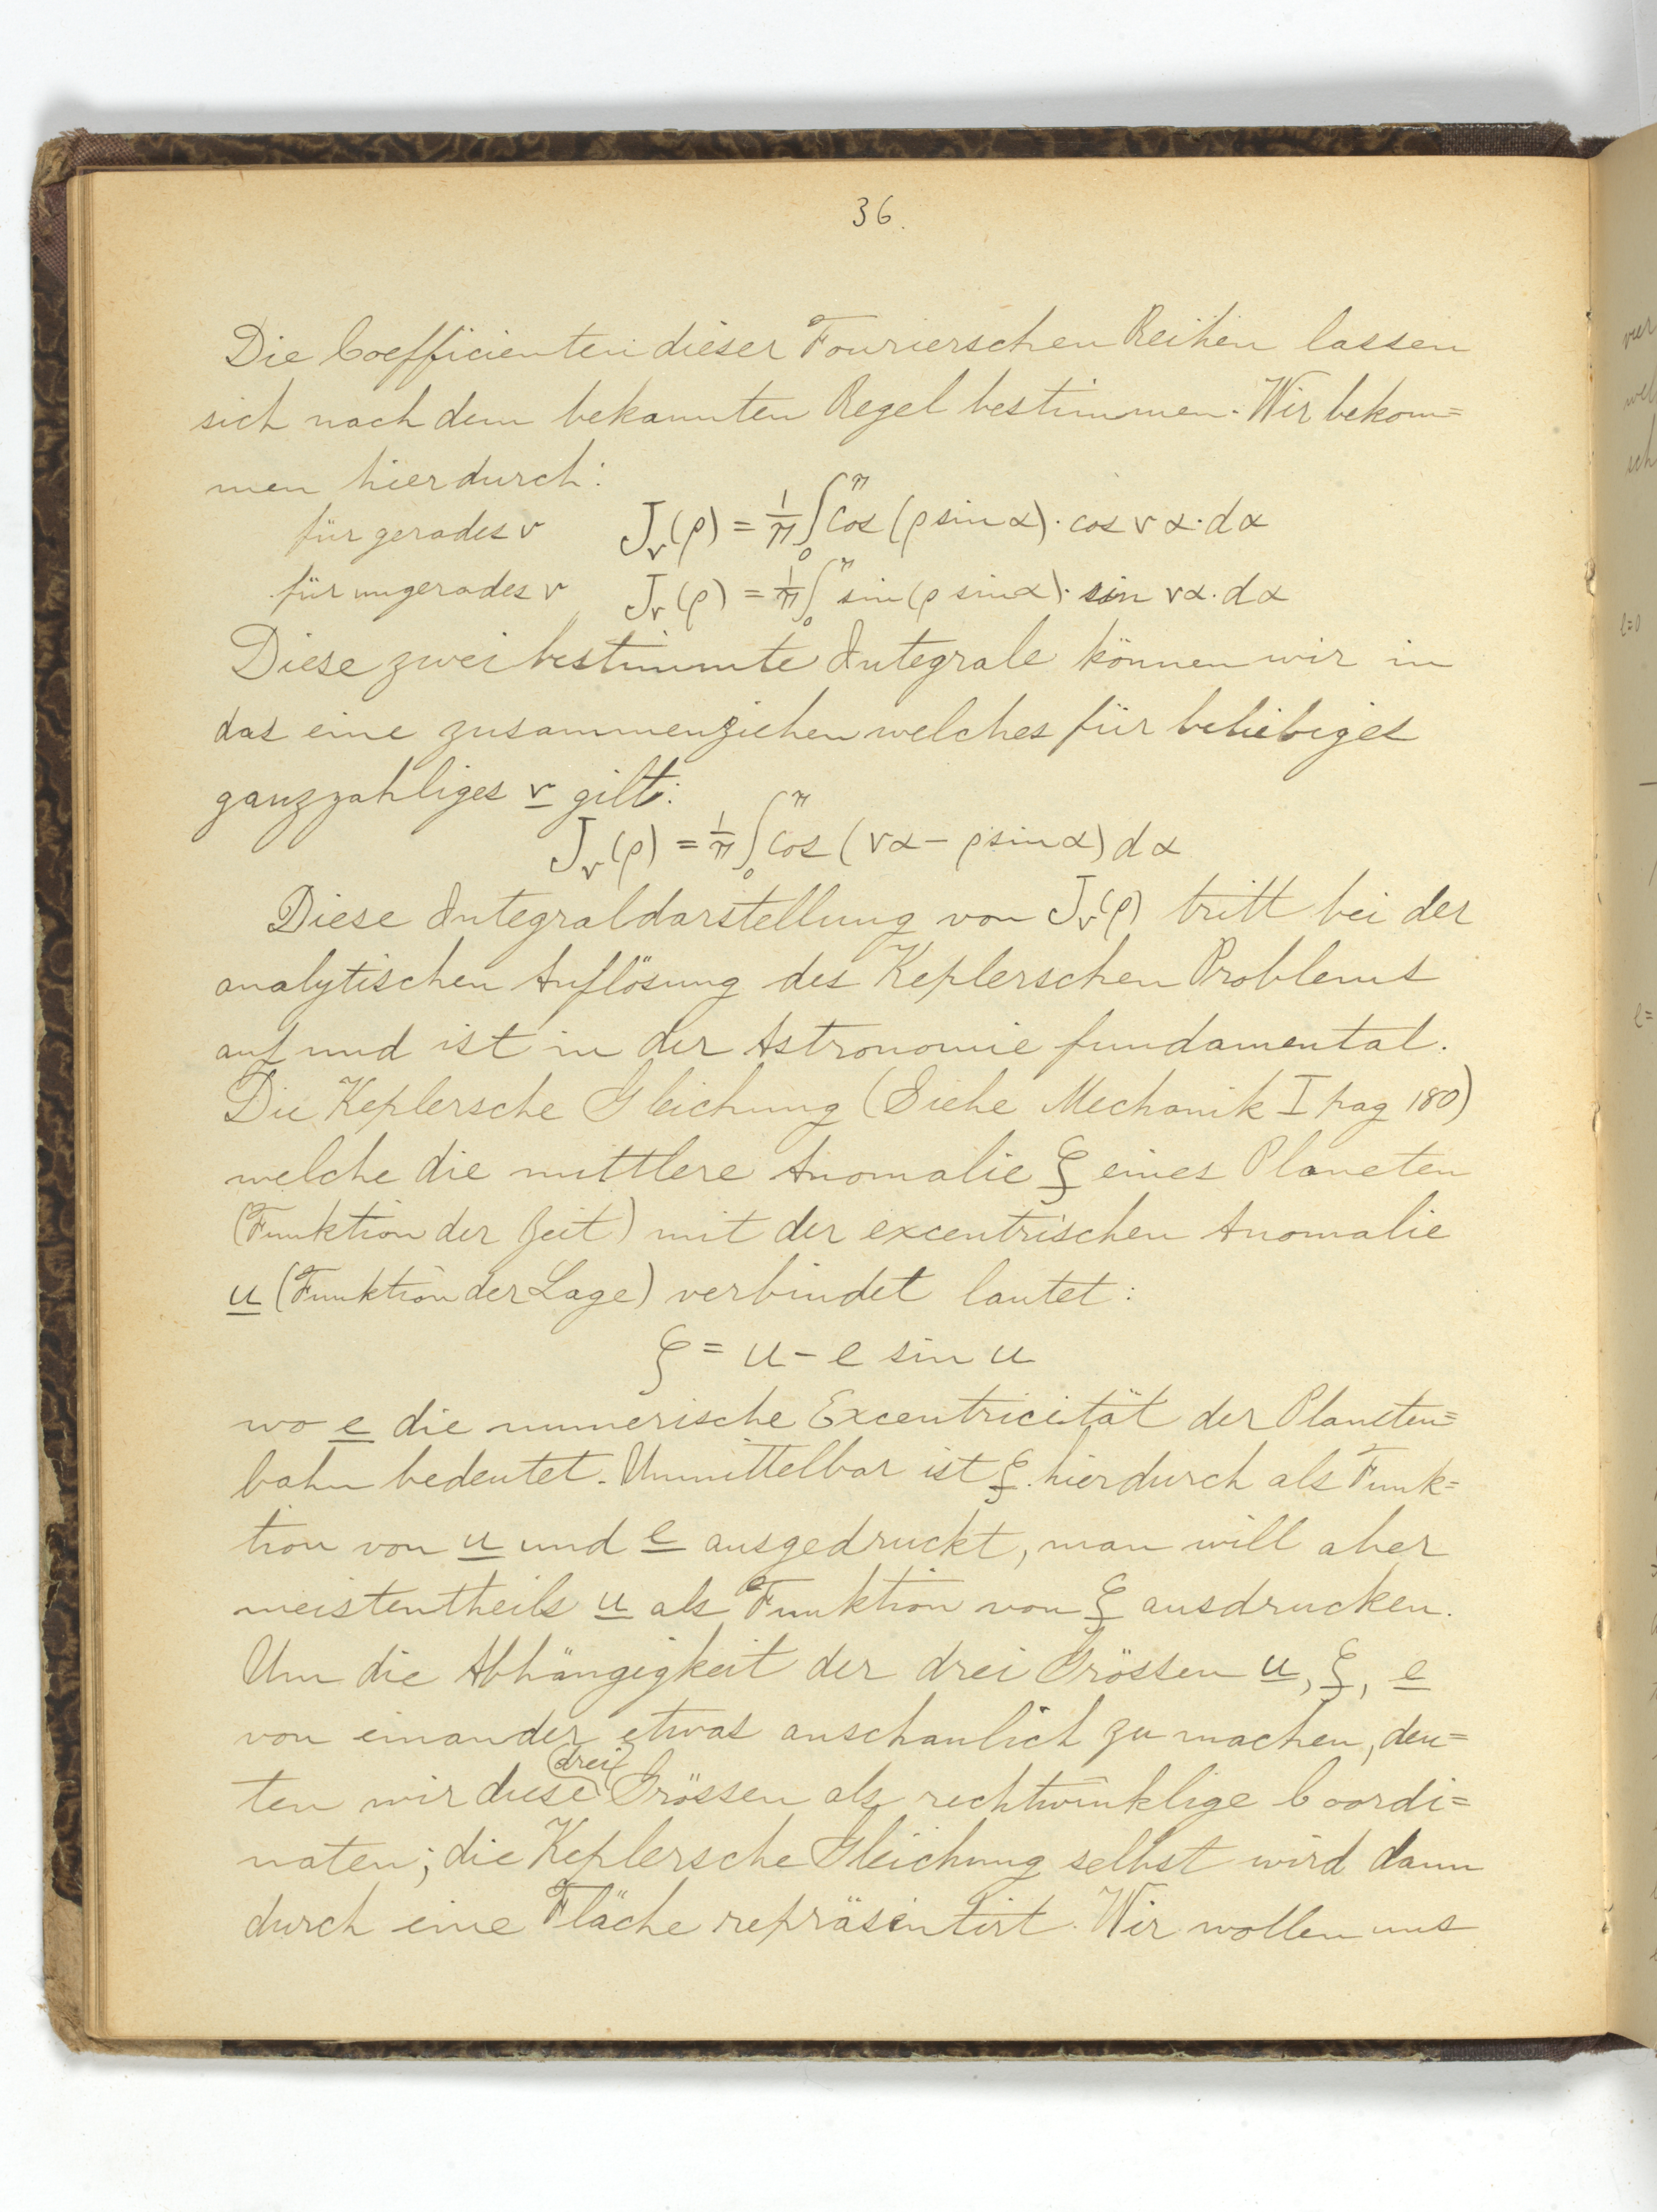 36.
Die Coefficienten dieser Fourierschen Reihen lassen
sich nach dem bekannten Regel bestimmen. Wir bekom=
men hierdurch:
für gerades ν J_ν(ρ) = 1/π ∫_0^π cos (ρ sin α) · cos ν α · dα
für ungerades ν J_ν(ρ) = 1/π ∫_0^π sin (ρ sin α) · sin να · dα
Diese zwei bestimmte Integrale können wir in
das eine zusammenziehen welches für beliebiges
ganzzahliges ν gilt:
J_ν(ρ) = 1/π ∫_0^π cos (να – ρ sin α) dα
Diese Integraldarstellung von J_ν(ρ) tritt bei der
analytischen Auflösung des Keplerschen Problems
auf und ist in der Astronomie fundamental.
Die Keplersche Gleichung (Siehe Mechanik I pag 180)
welche die mittlere Anomalie ζ eines Planeten
(Funktion der Zeit) mit der excentrischen Anomalie
u (Funktion der Lage) verbindet lautet:
ζ = u – e sin u
wo e die numerische Excentricität der Planeten=
bahn bedeutet. Unmittelbar ist ζ hierdurch als Funk=
tion von u und e ausgedruckt, man will aber
meistentheils u als Funktion von ζ ausdrucken.
Um die Abhängigkeit der drei Grössen u, ζ, e
von einander etwas anschaulich zu machen, deu=
ten wir diese drei Grössen als rechtwinklige Coordi=
naten; die Keplersche Gleichung selbst wird dann
durch eine Fläche repräsentirt. Wir wollen uns